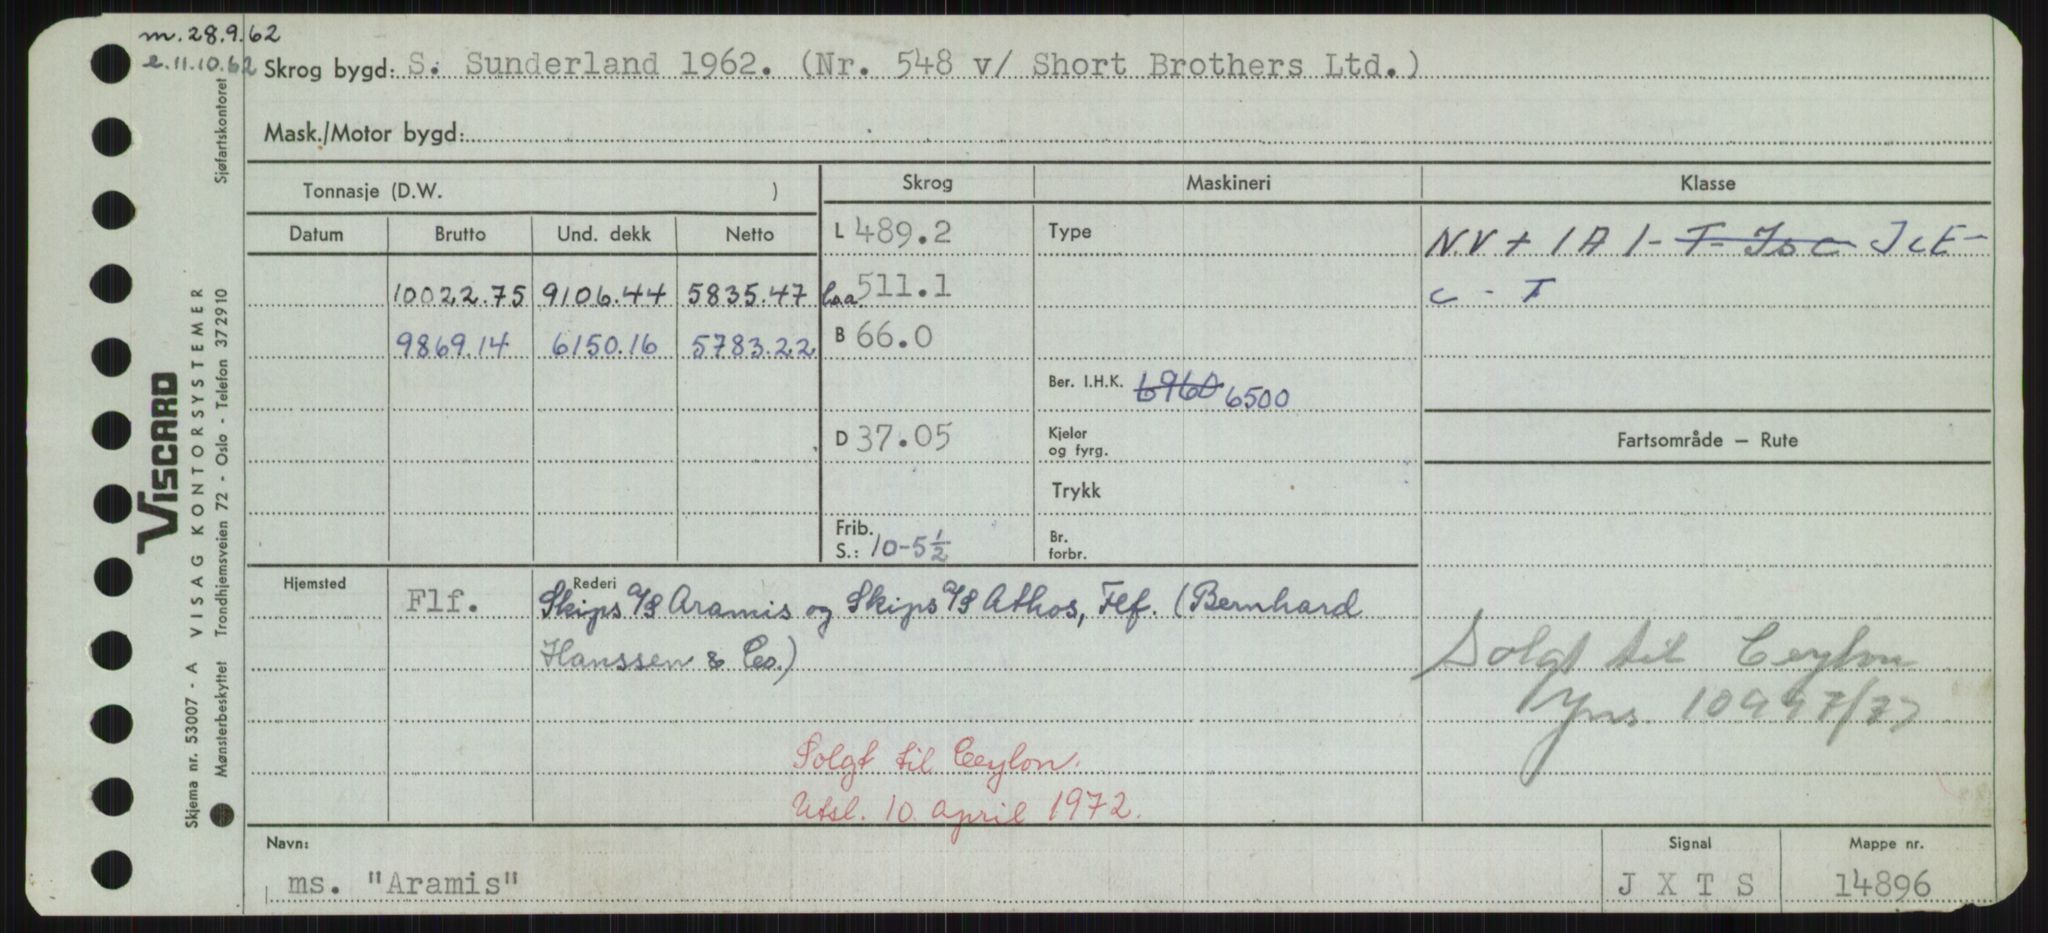 m. 28.9.62
e. 11.10.62
Skrog bygd: S. Sunderland 1962. (Nr. 548 v/ Short Brothers Ltd.)
Mask./Motor bygd:
Tonnasje (D.W. )
Skrog Maskineri Klasse
Datum Brutto Und. dekk Netto
L 489.2 Type N.V + 1 A 1 - T- Isc IcE -
10022.75 9106.44 5835.47 Loa 511.1 c - T
9869.14 6150.16 5783.22 B 66.0
Ber. I.H.K. 6960 6500
D 37.05 Kjeler og fyrg. Fartsområde — Rute
Trykk
Frib. S.: 10-5½ Br. forbr.
Hjemsted Flf. Rederi Skips A/S Aramis og Skips A/S Athos, Flf. (Bernhard
Hanssen & Co.)
Solgt til Ceylon
Jnr. 10997/72
Solgt til Ceylon.
Utsl. 10. april 1972.
Navn: ms. "Aramis"
Signal J X T S
Mappe nr. 14896
VISCARD
Skjema nr. 53007 - A VISAG KONTORSYSTEMER
Mønsterbeskyttet Trondhjemsveien 72 - Oslo - Telefon 372910 Sjøfartskontoret